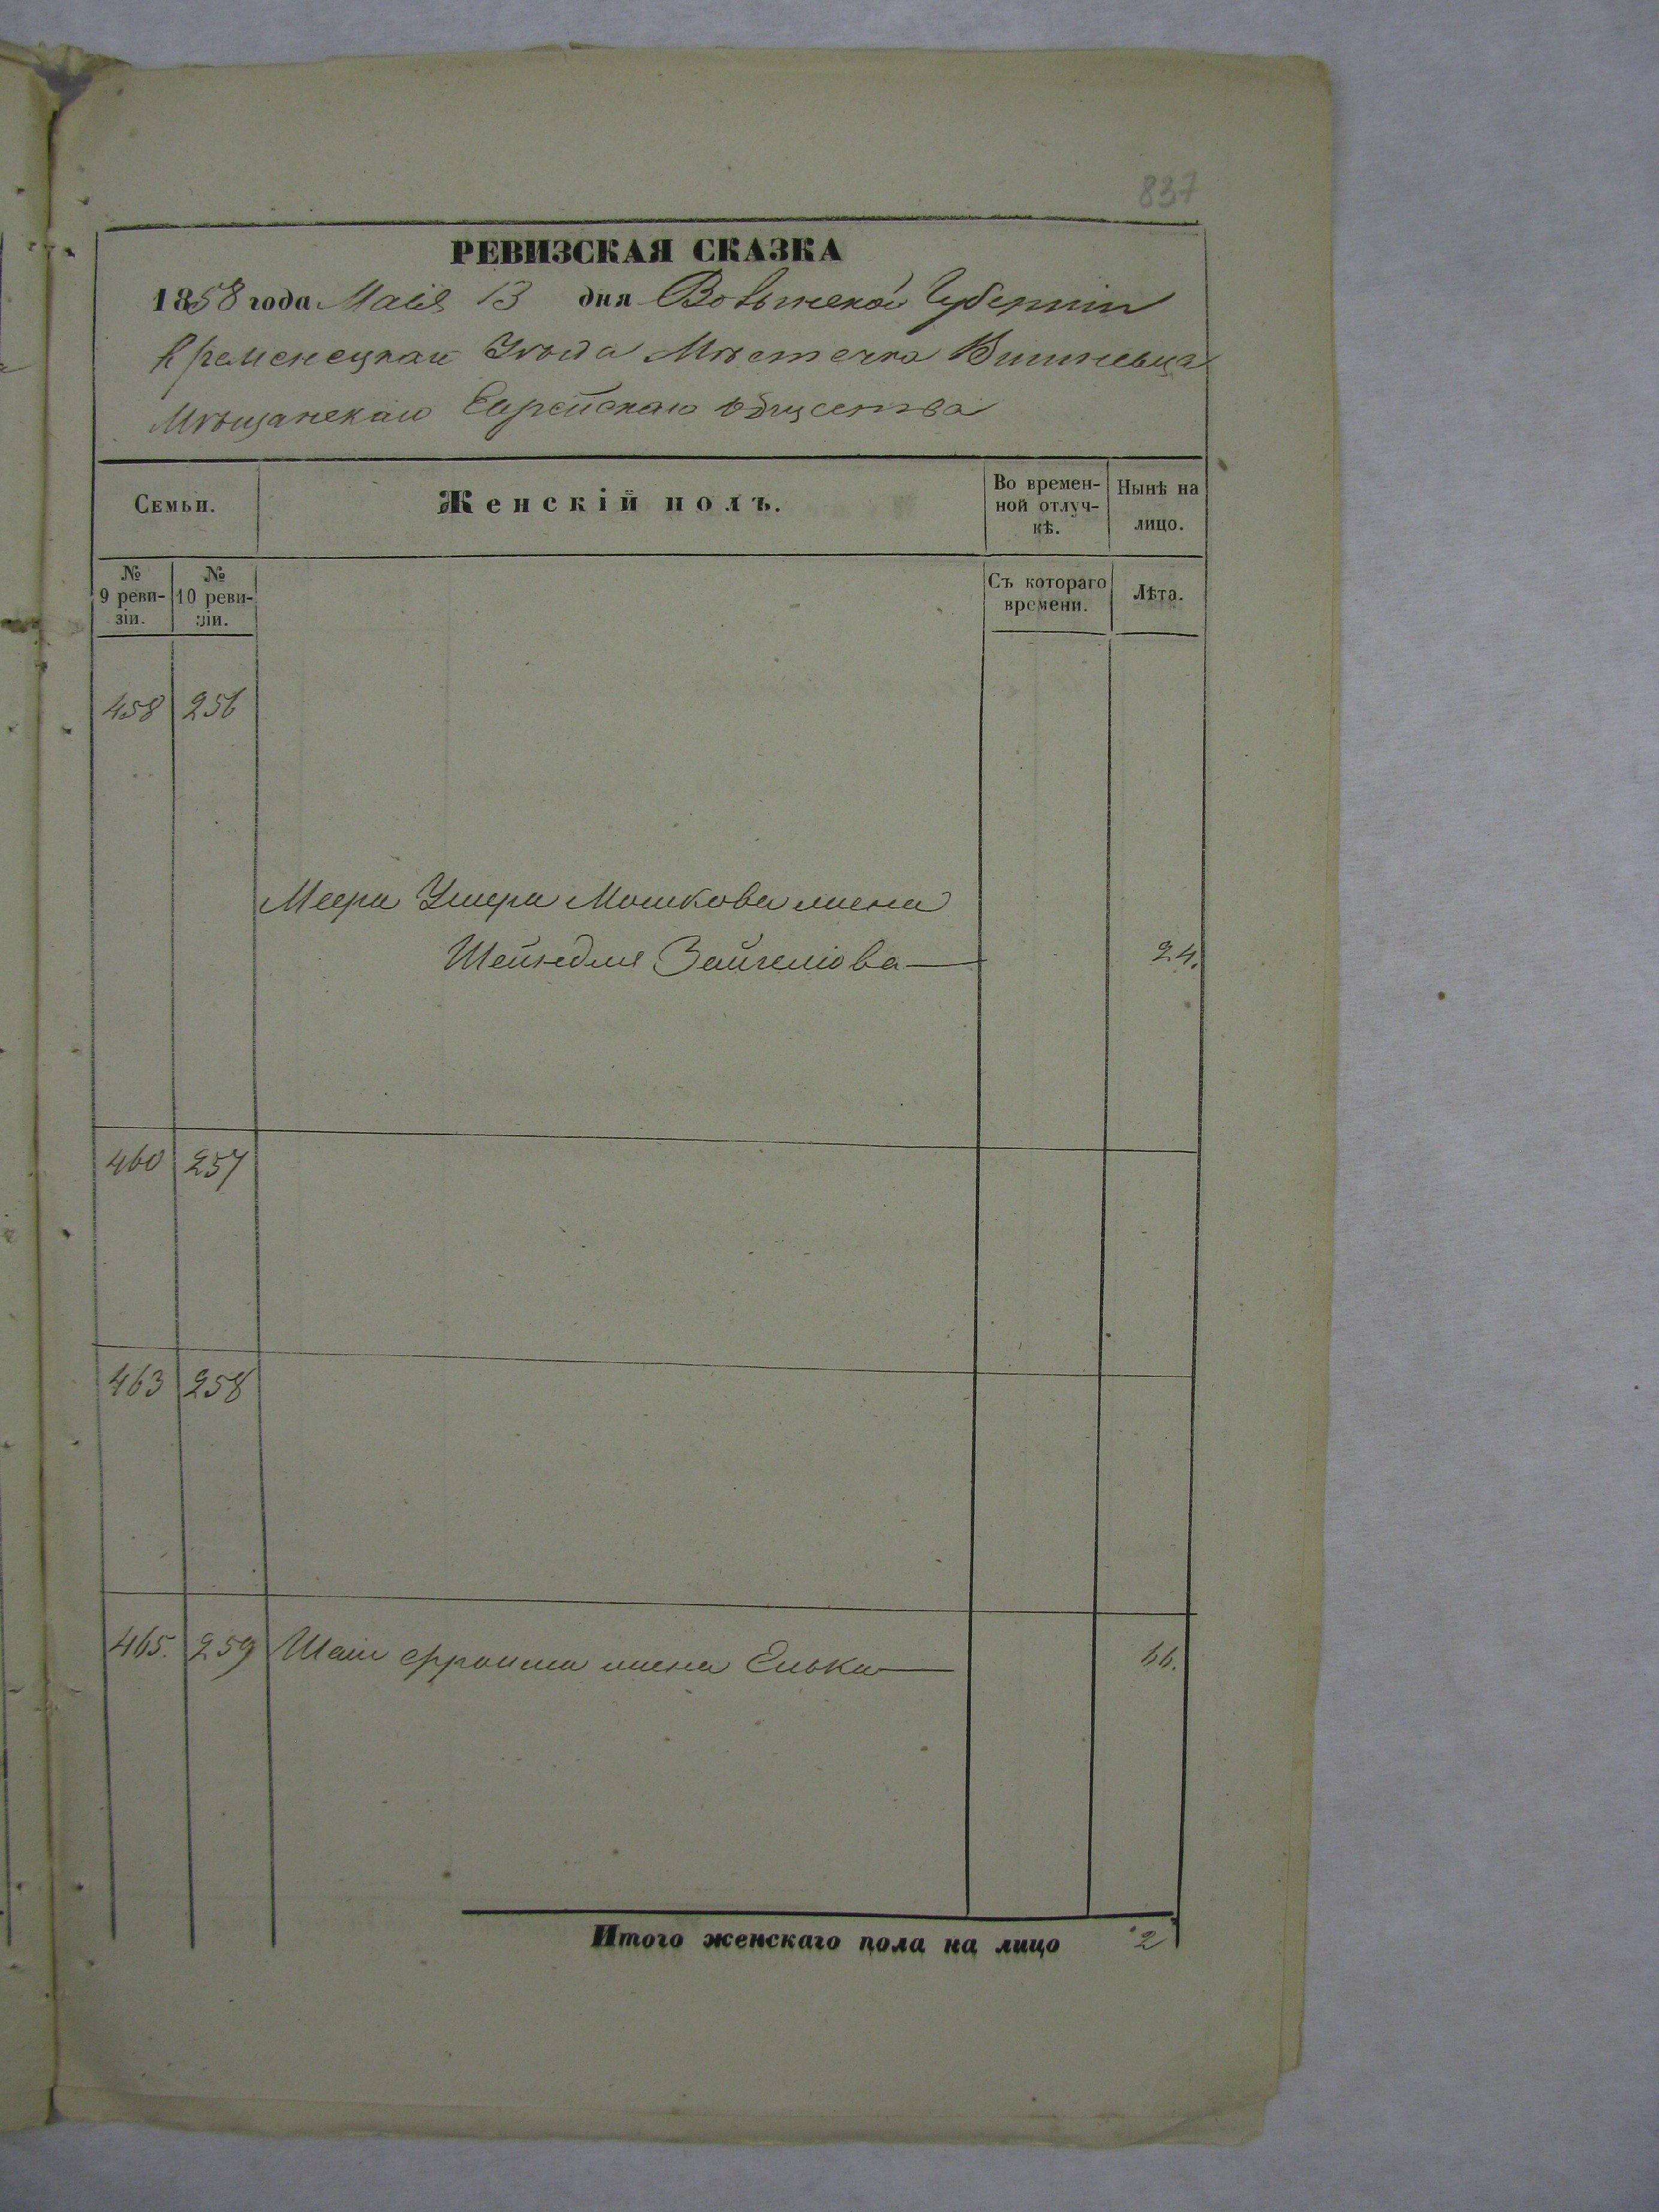 837
РЕВИЗСКАЯ СКАЗКА
1858 года Маія 13 дня Волынской Губерніи
Кременецкаго Уѣзда Мѣстечка Вишневца
Мѣщанскаго Еврейскаго общества
Семьи.
Женскій полъ.
Во времен-
ной отлуч-
кѣ.
Нынѣ на
лицо.
№
9 реви-
зіи.
№
10 реви-
зіи.
Съ котораго
времени.
Лѣта.
458 256
Меера Умера Мошкова жена
Шейндля 24.
460 257
463 258
465. 259 жена Елька 66.
Итого женскаго пола на лицо 2